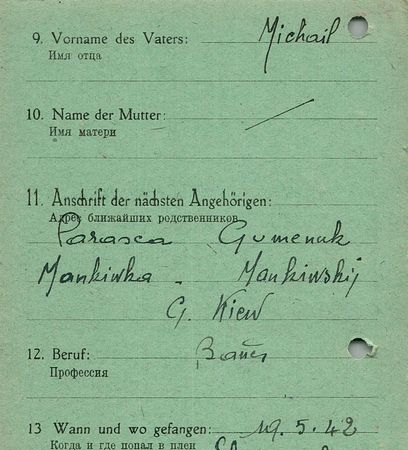 9. Vorname des Vaters: Michail
Имя отца
10. Name der Mutter:
Имя матери
11. Anschrift der nächsten Angehörigen:
Адрес ближайших родственников
Parasca Gumenuk
Mankiwka - Mankiwskij
G. Kiew
12. Beruf: Bauer
Профессия
13 Wann und wo gefangen: 19. 5. 42
Когда и где попал в плен